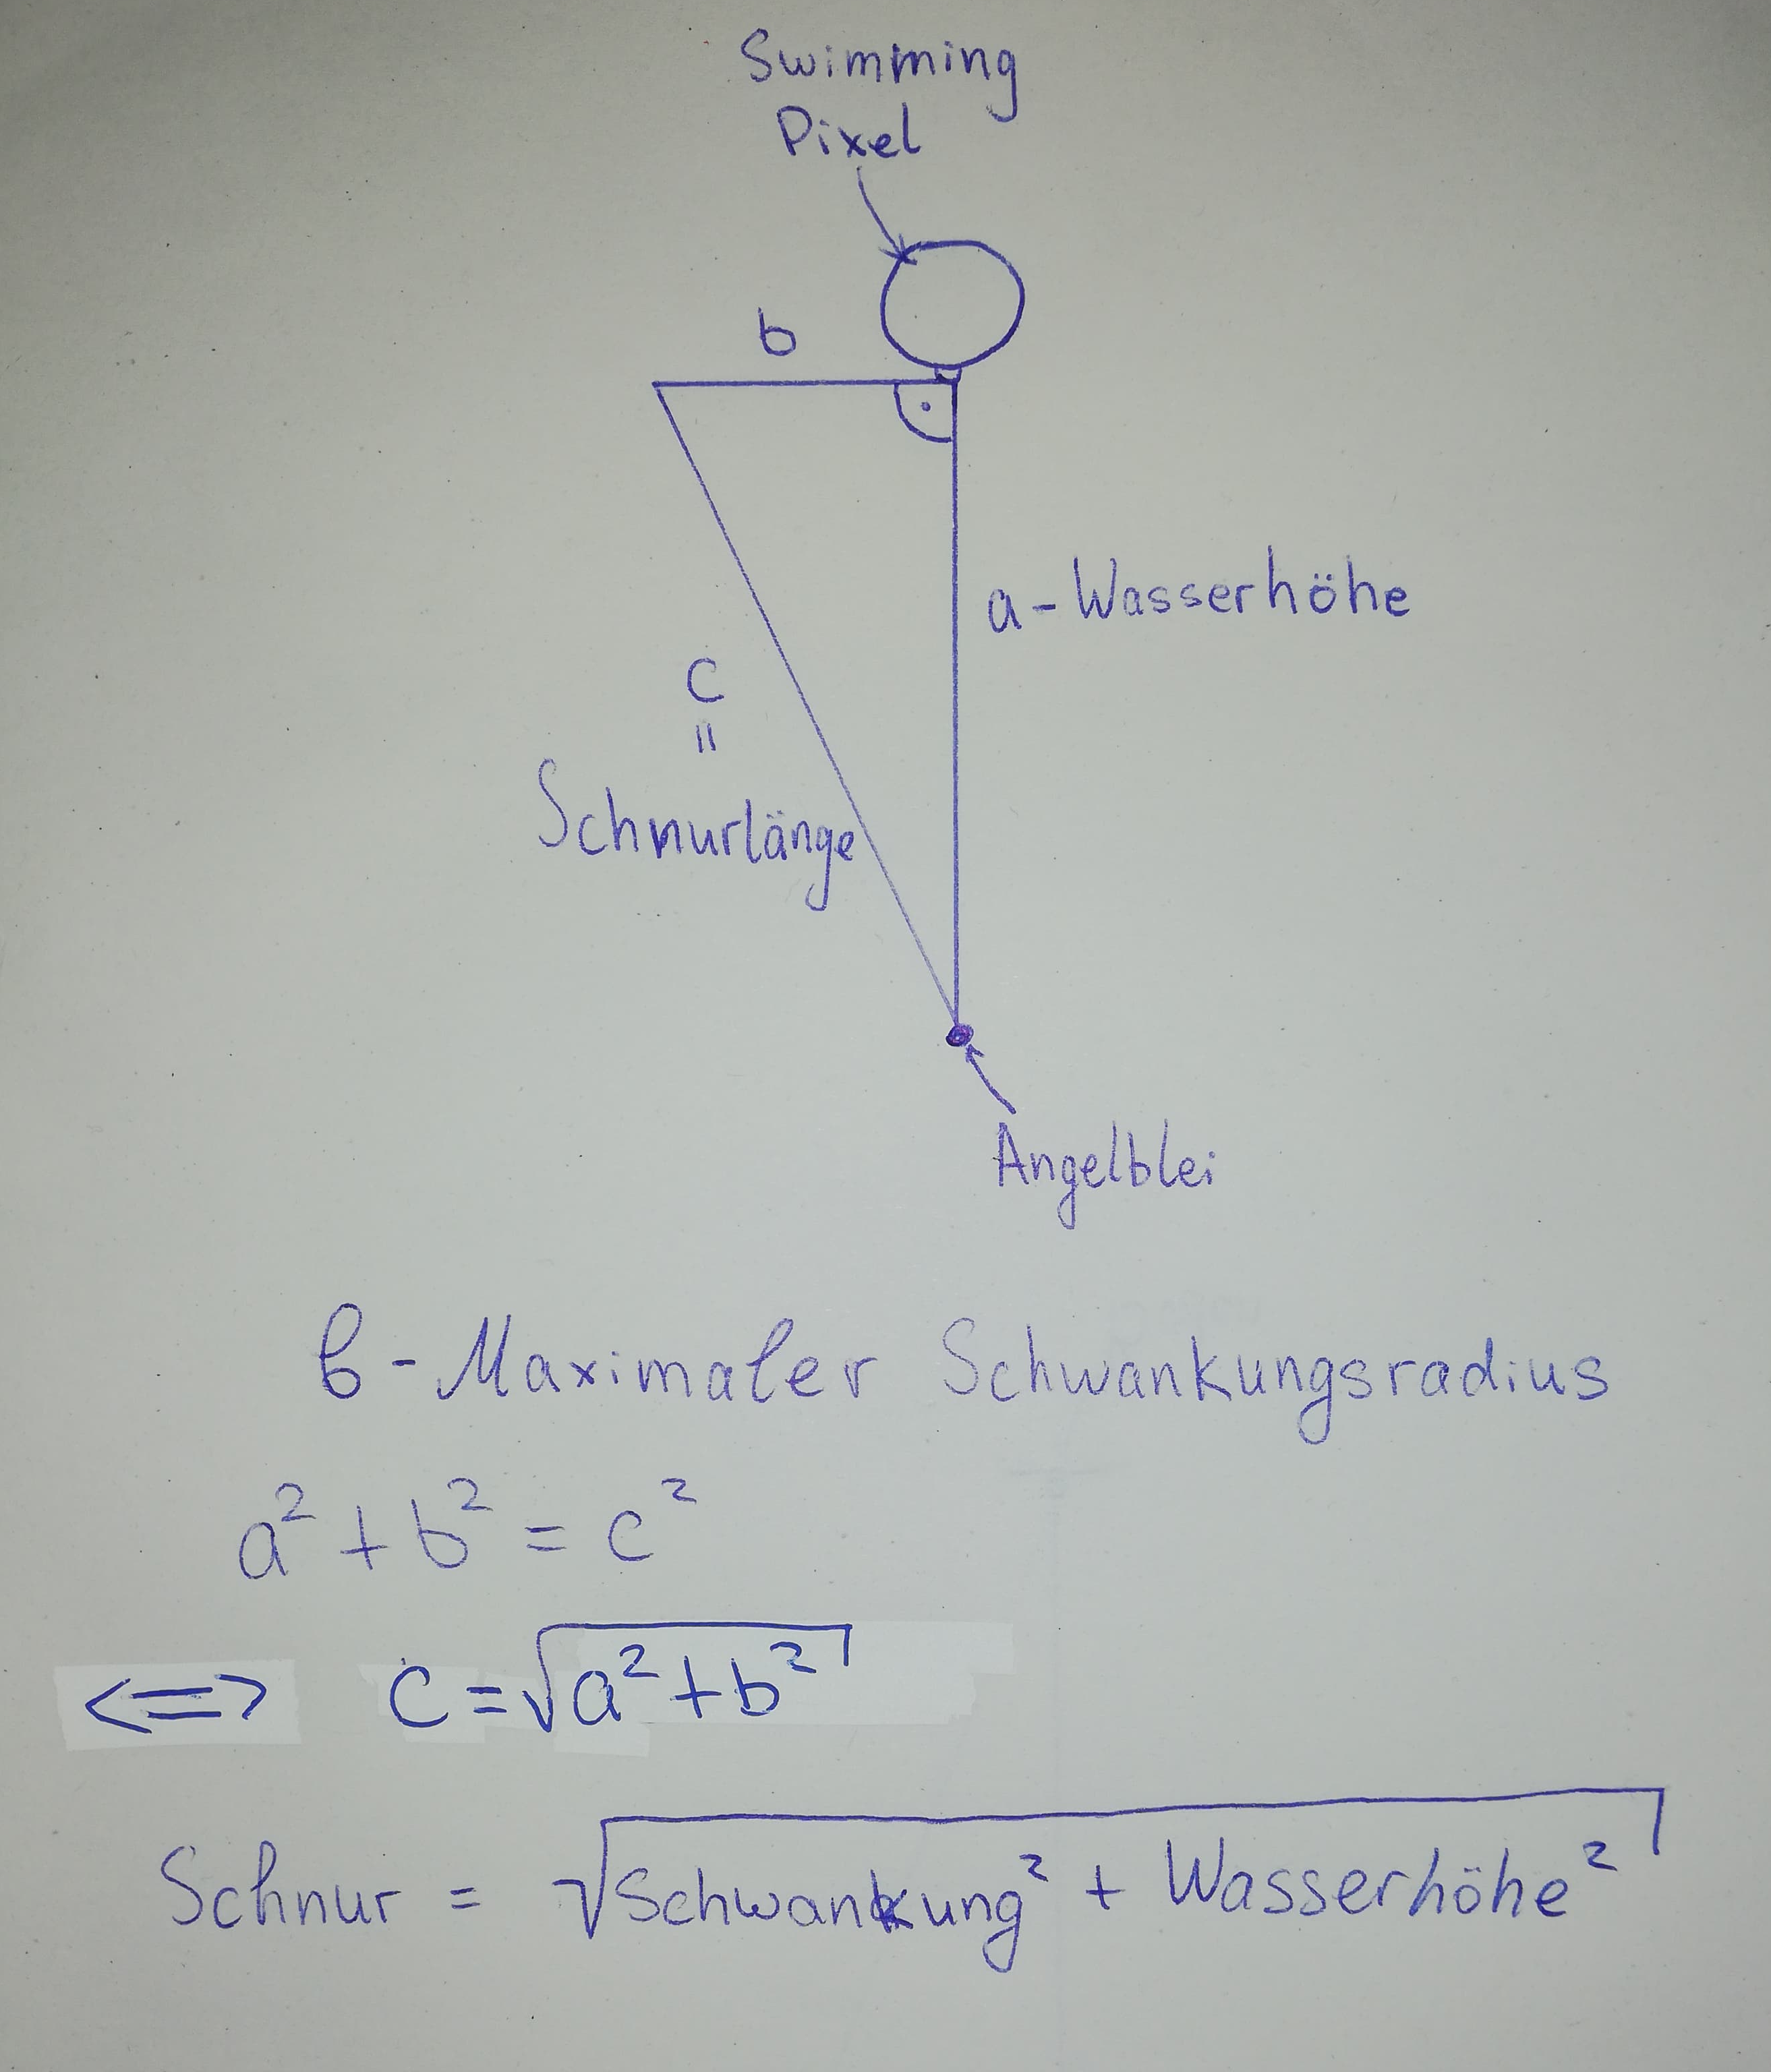 Swimming
Pixel
b
a - Wasserhöhe
c
=
Schnurlänge
Angelblei
b - Maximaler Schwankungsradius
a² + b² = c²
<=> c = √a² + b²
Schnur = √Schwankung² + Wasserhöhe²